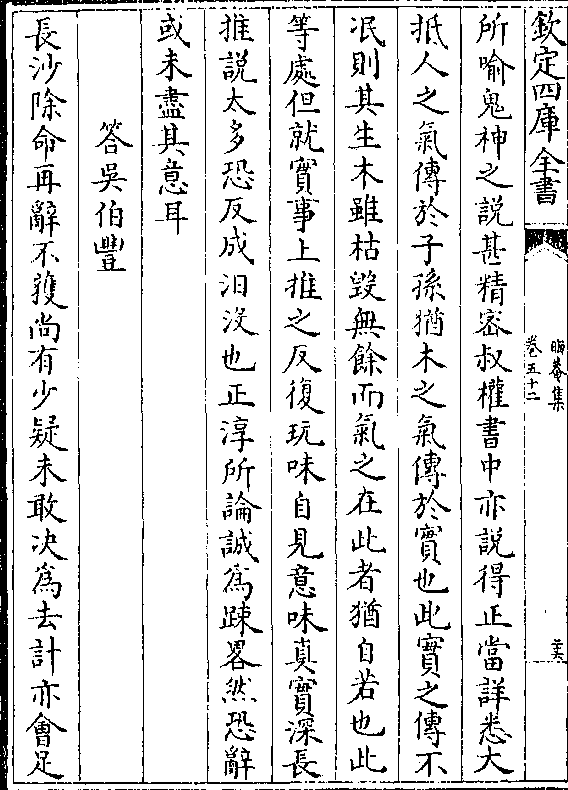 欽定四庫全書
晦菴集
卷五十二
所喻鬼神之說甚精密叔權書中亦說得正當詳悉大
抵人之氣傳於子孫猶木之氣傳於實也此實之傳不
泯則其生木雖枯毀無餘而氣之在此者猶自若也此
等處但就實事上推之反復玩味自見意味真實深長
推說太多恐反成汨沒也正淳所論誠為踈畧然恐辭
或未盡其意耳
答吳伯豐
長沙除命再辭不獲尚有少疑未敢决為去計亦會足